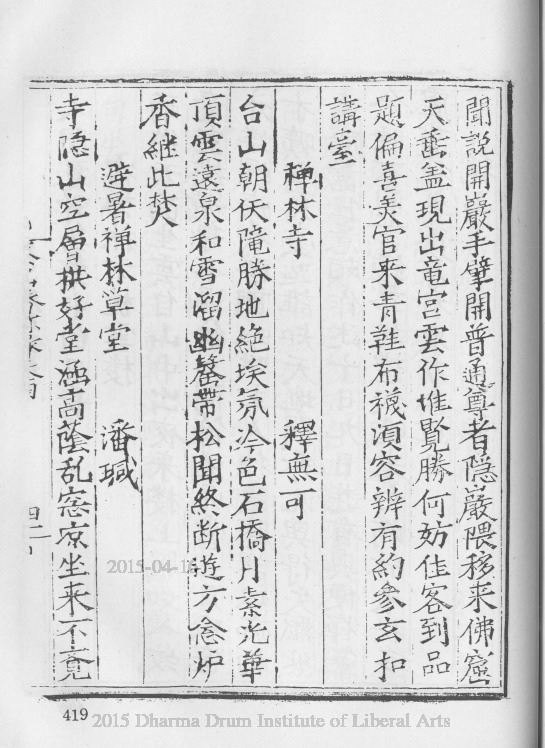 聞說開嚴手肇開普通尊者隱嚴隈移来佛窟
天垂盖現出竜宮雲作堆覽勝何妨佳客到品
題偏喜羙官来青鞋布襪湏容辨有約參玄扣
講臺
禅林寺　釋無可
台山朝伏隆勝地絶埃氛冷色石橋月素光華
頂雲遠泉和雪溜幽磬帶松聞終斷遊方念炉
香継此焚
避暑禅林草堂　潘瑊
寺隐山空層栱好堂涵高蔭乱窓凉坐来不覺
四二
419
2015-04-1
2015 Dharma Drum Institute of Liberal Arts